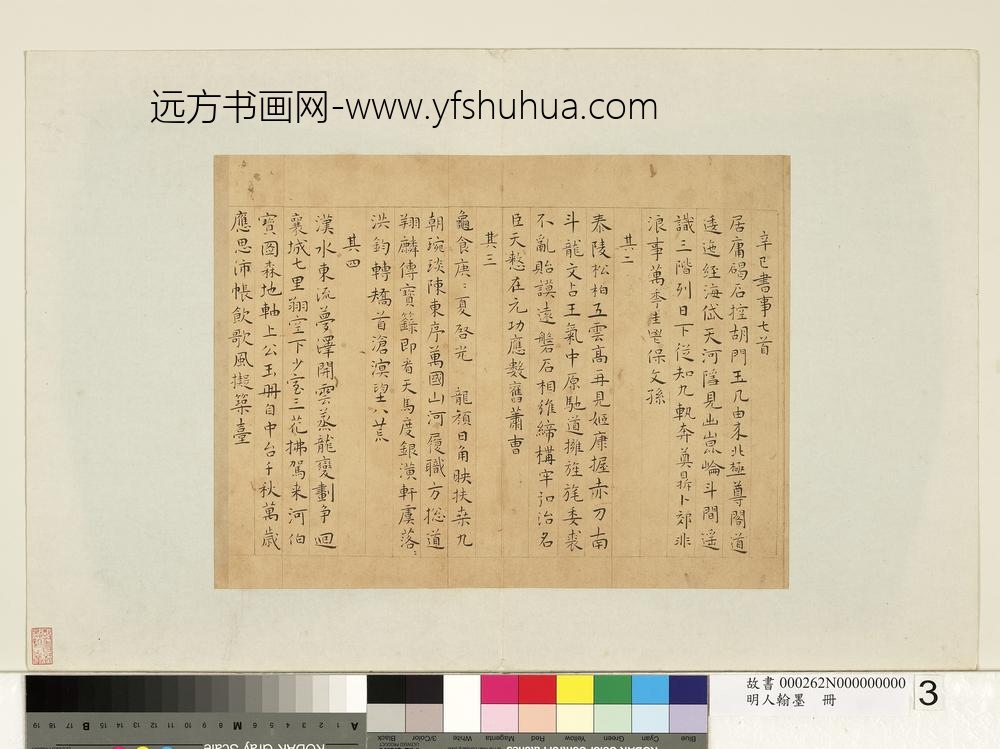 远方书画网-www.yfshuhua.com
辛巳書事七首
居庸碣石控胡門玉几由来北極尊閣道
逶迤經海岱天河隱見出崑崙斗間遥
識三階列日下從知九軌奔莫 卜郊非
浪事萬季 保文孫
其二
泰陵松柏五雲高再見姬康握赤刀南
斗龍文占王氣中原馳道擁旌旄委裘
不亂貽謨遠磐石相維締構牢 治名
臣天憖在元功應數舊蕭曹
其三
龜食庚:夏啓光 龍顔日角映扶桒九
朝琬琰陳東序萬國山河履職方摠道
翔麟傳寳籙即看天馬度銀潢軒虞落:
洪鈞轉矯首滄溟望八荒
其四
漢水東流夢澤開雲蒸龍變劃争迴
襄城七里翔空下少室三花拂駕来河伯
寳圖森地軸上公玉冊自中台千秋萬歳
應思沛帳飲歌風擬築臺
故書 000262N000000000
明人翰墨 冊
3
19 18 17 B 16 15 14 13 12 11 10 9 M 8 7 6 5 4 3 2 1 A
KODAK Gray Scale
Black 3/Color White Magenta Red Yellow Green Cyan Blue